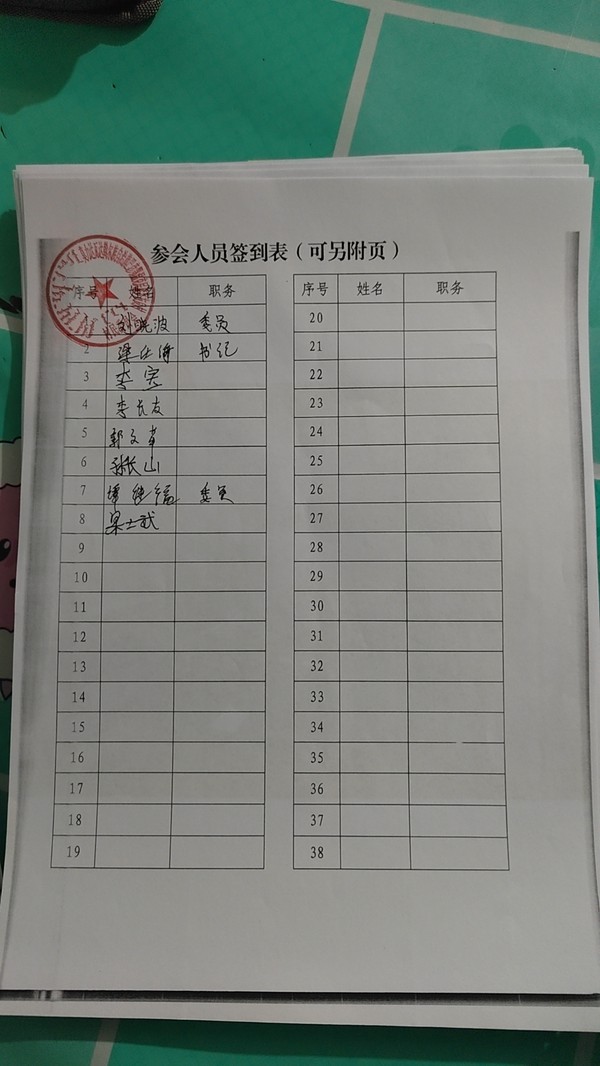 参会人员签到表（可另附页）
序号 姓名 职务 序号 姓名 职务
刘晓波 委员 20
2 书记 21
3 李宝 22
4 李长友 23
5 郭文章 24
6 张长山 25
7 委员 26
8 梁士武 27
9 28
10 29
11 30
12 31
13 32
14 33
15 34
16 35
17 36
18 37
19 38